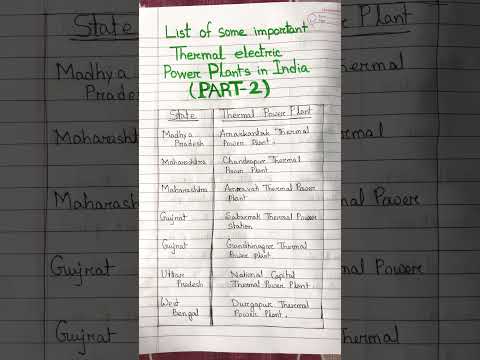 List of some important
Thermal electric
Power Plants in India
(PART-2)
State Thermal Power Plant
Madhya Pradesh Amarkantak Thermal Power Plant.
Maharashtra Chandrapur Thermal Power Plant
Maharashtra Amravati Thermal Power Plant
Gujrat Sabarmati Thermal Power Station
Gujrat Gandhinagar Thermal Power plant
Uttar Pradesh National Capital Thermal Power Plant.
West Bengal Durgapur Thermal Power Plant.
State
Madhya
Prade
Maharash
Maharash
Gujrat
Gujrat
Plant
thermal
mal
al Power
Power
mal